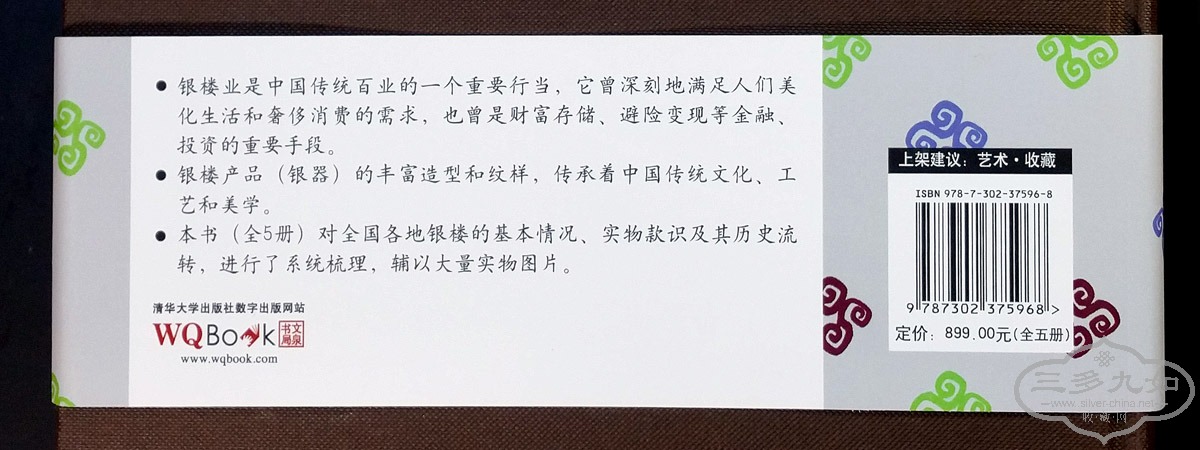 ● 银楼业是中国传统百业的一个重要行当，它曾深刻地满足人们美
化生活和奢侈消费的需求，也曾是财富存储、避险变现等金融、
投资的重要手段。
● 银楼产品（银器）的丰富造型和纹样，传承着中国传统文化、工
艺和美学。
● 本书（全5册）对全国各地银楼的基本情况、实物款识及其历史流
转，进行了系统梳理，辅以大量实物图片。
清华大学出版社数字出版网站
WQBook 文泉书局
www.wqbook.com
上架建议：艺术·收藏
ISBN 978-7-302-37596-8
9 787302 375968 >
定价：899.00元(全五册)
三多九如
www.silver-china.net
收·藏·网